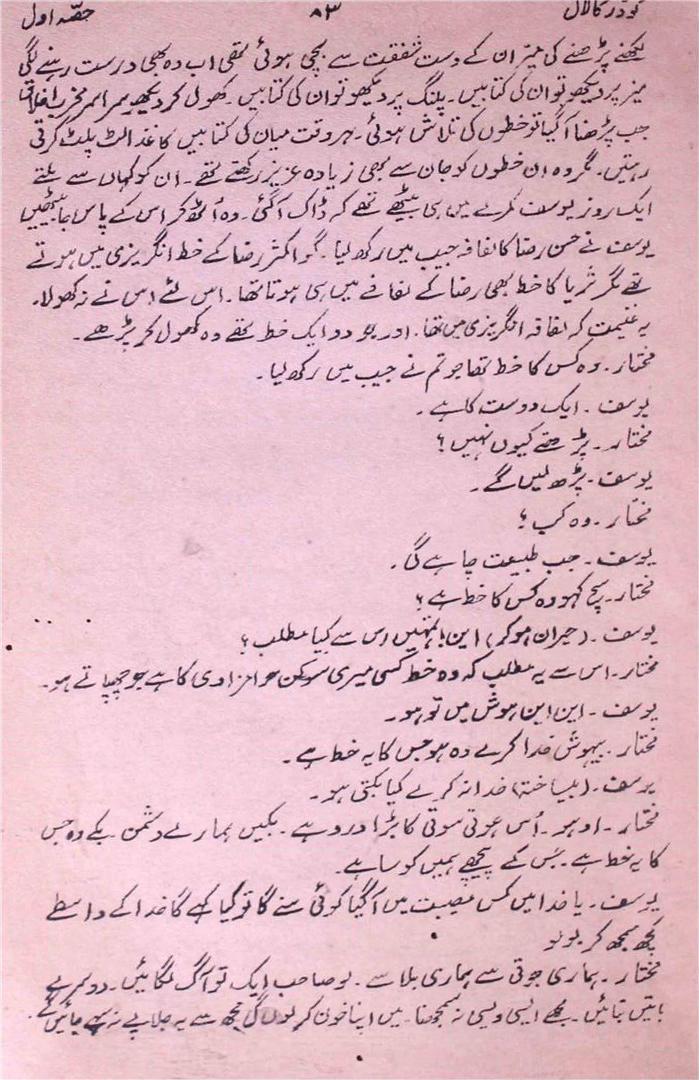 گودڑ کا لال ۸۳ حصّہ اول
لکھنے پڑھنے کی میز ان کے دست شفقت سے بچی ہوئی تھی اب وہ بھی درست رہنے لگی
میز پر دیکھو تو ان کی کتابیں۔ پلنگ پر دیکھو تو ان کی کتابیں۔ کھول کر دیکھو سراسر مخرب اخلاق
جب پڑھنا آگیا تو خطوں کی تلاش ہوئی۔ ہر وقت میاں کی کتابیں کاغذ الٹ پلٹ کرتی
رہتیں۔ مگر وہ ان خطوں کو جان سے بھی زیادہ عزیز رکھتے تھے۔ ان کو کہاں سے ملتے
ایک روز یوسف کمرے میں ہی بیٹھے تھے کہ ڈاک آگئی۔ وہ اُٹھ کر اس کے پاس جا بیٹھیں
یوسف نے حسن رضا کا لفافہ جیب میں رکھ لیا۔ گو اکثر رضا کے خط انگریزی میں ہوتے
تھے مگر ثریا کا خط بھی رضا کے لفافے میں ہی ہوتا تھا۔ اس لئے اس نے نہ کھولا۔
یہ غنیمت کہ لفافہ انگریزی میں تھا۔ اور جو دو ایک خط تھے وہ کھول کر پڑھے۔
مختار۔ وہ کس کا خط تھا جو تم نے جیب میں رکھ لیا۔
یوسف۔ ایک دوست کا ہے۔
مختار۔ پڑھتے کیوں نہیں؟
یوسف۔ پڑھ لیں گے۔
مختار۔ وہ کب؟
یوسف۔ جب طبیعت چاہے گی۔
مختار۔ سچ کہو وہ کس کا خط ہے؟
یوسف۔ (حیران ہو کر) این! تمہیں اس سے کیا مطلب؟
مختار۔ اس سے یہ مطلب کہ وہ خط کسی میری سوکن حرامزادی کا ہے جو چھپاتے ہو۔
یوسف۔ این این ہوش میں تو ہو۔
مختار۔ بیہوش خدا کرے وہ ہو جس کا یہ خط ہے۔
یوسف۔ (بیساختہ) خدا نہ کرے کیا بکتی ہو۔
مختار۔ اوہو۔ اُس عوتی سوتی کا بڑا درد ہے۔ بکیں ہمارے دشمن۔ بکے وہ جس
کا یہ خط ہے۔ جس کے پیچھے ہمیں کوسا ہے۔
یوسف۔ یا خدا میں کس مصیبت میں آگیا کوئی سنے گا تو کیا کہے گا خدا کے واسطے
کچھ سمجھ کر بولو
مختار۔ ہماری جوتی سے ہماری بلا سے۔ لو صاحب ایک تو آگ لگائیں۔ دوسرے
باتیں بنائیں۔ مجھے ایسی ویسی نہ سمجھنا۔ میں اپنا خون کر لوں گی مجھ سے یہ جلاپے نہ سہے جائیں گے۔